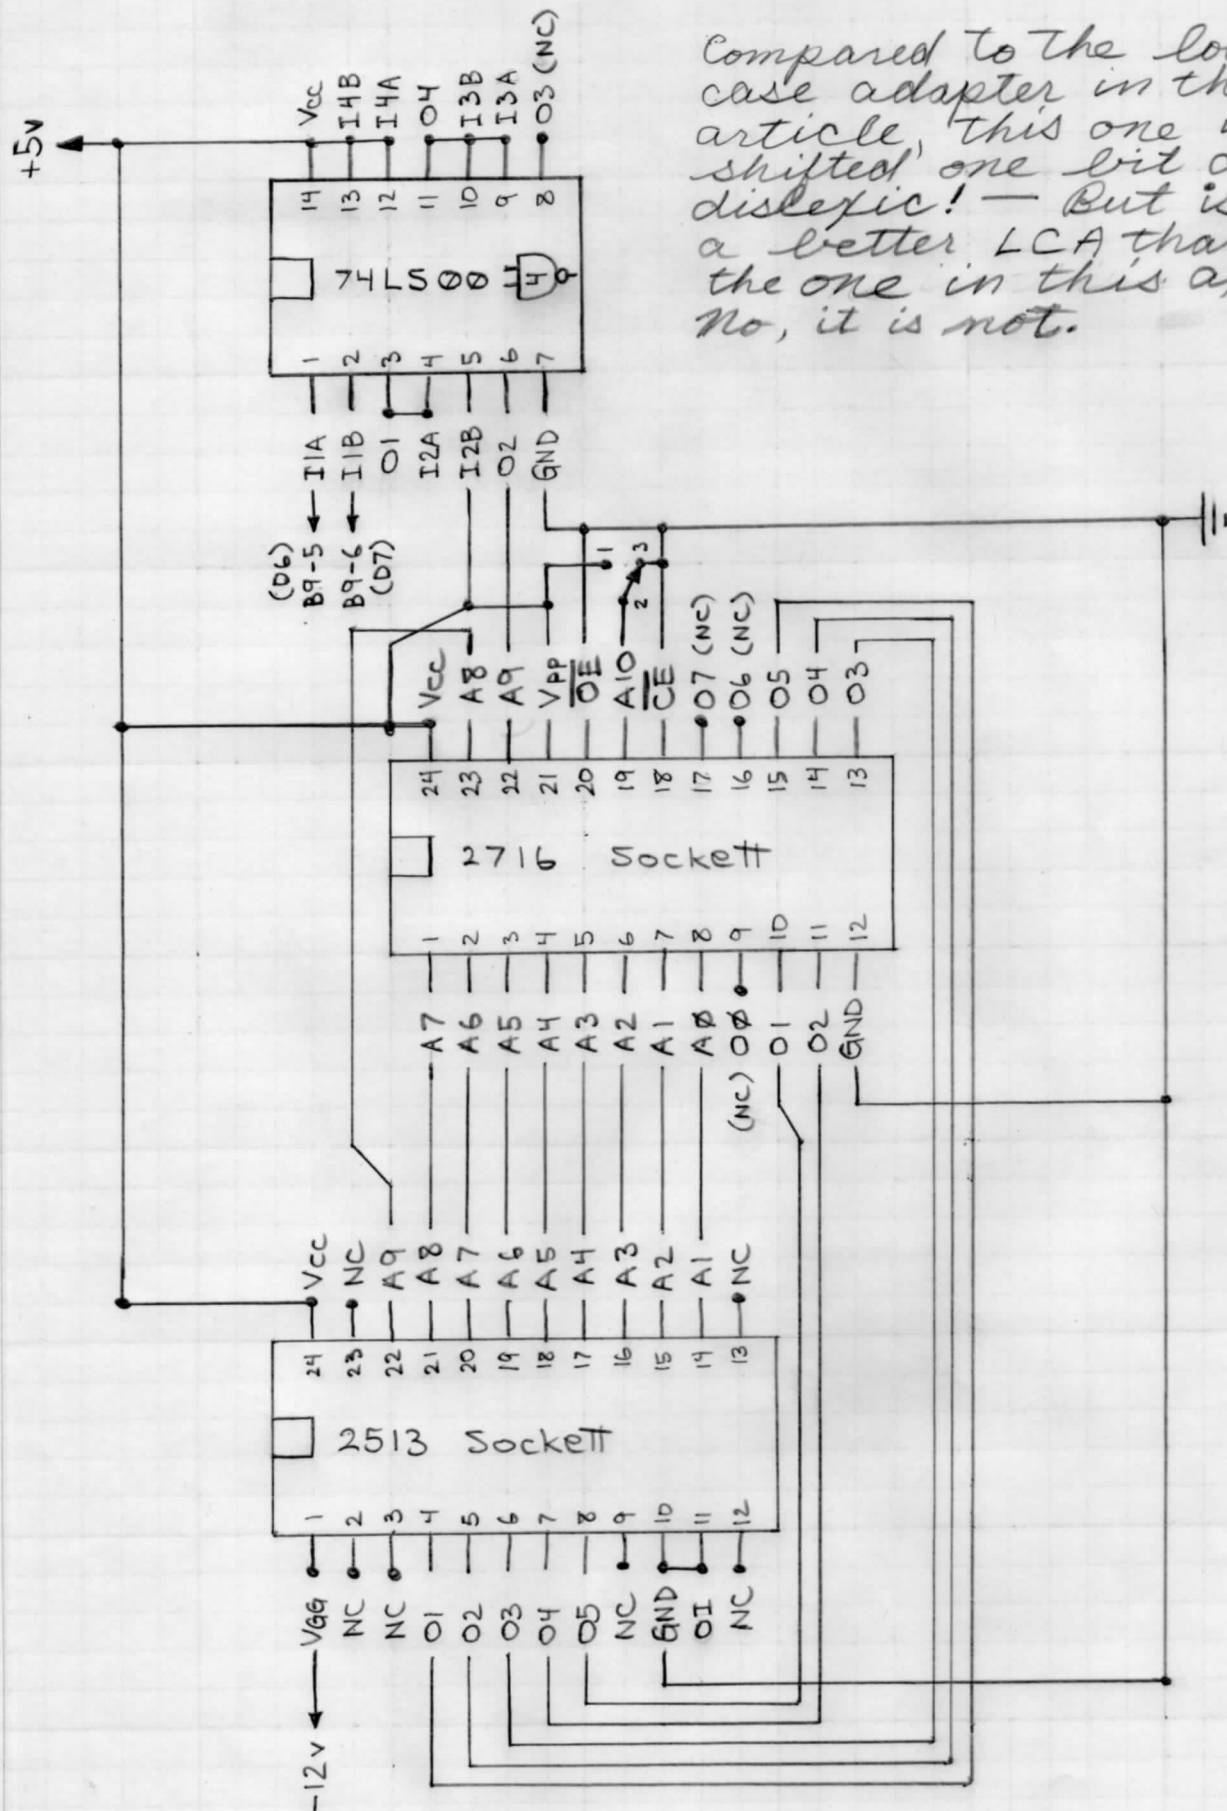 Compared to the
case adapter in
article, this one
shifted one bit
dislexic! — But
a better LCA
the one in this
No, it is not.
+5v
Vcc
I4B
I4A
O4
I3B
I3A
O3 (NC)
14 13 12 11 10 9 8
74LS00 4
1 2 3 4 5 6 7
I1A
I1B
O1
I2A
I2B
O2
GND
(D6)
B9-5
B9-6
(D7)
1
2
3
Vcc
A8
A9
Vpp
OE
A10
CE
O7 (NC)
O6 (NC)
O5
O4
O3
24 23 22 21 20 19 18 17 16 15 14 13
2716 Sockett
1 2 3 4 5 6 7 8 9 10 11 12
A7
A6
A5
A4
A3
A2
A1
AØ
(NC) OØ
O1
O2
GND
Vcc
NC
A9
A8
A7
A6
A5
A4
A3
A2
A1
NC
24 23 22 21 20 19 18 17 16 15 14 13
2513 Sockett
1 2 3 4 5 6 7 8 9 10 11 12
VGG
NC
NC
O1
O2
O3
O4
O5
NC
GND
OI
NC
-12v